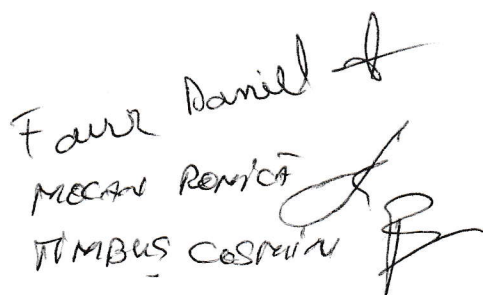 Faur Daniel
MOCAN RONICĂ
TIMBUȘ COSMIN